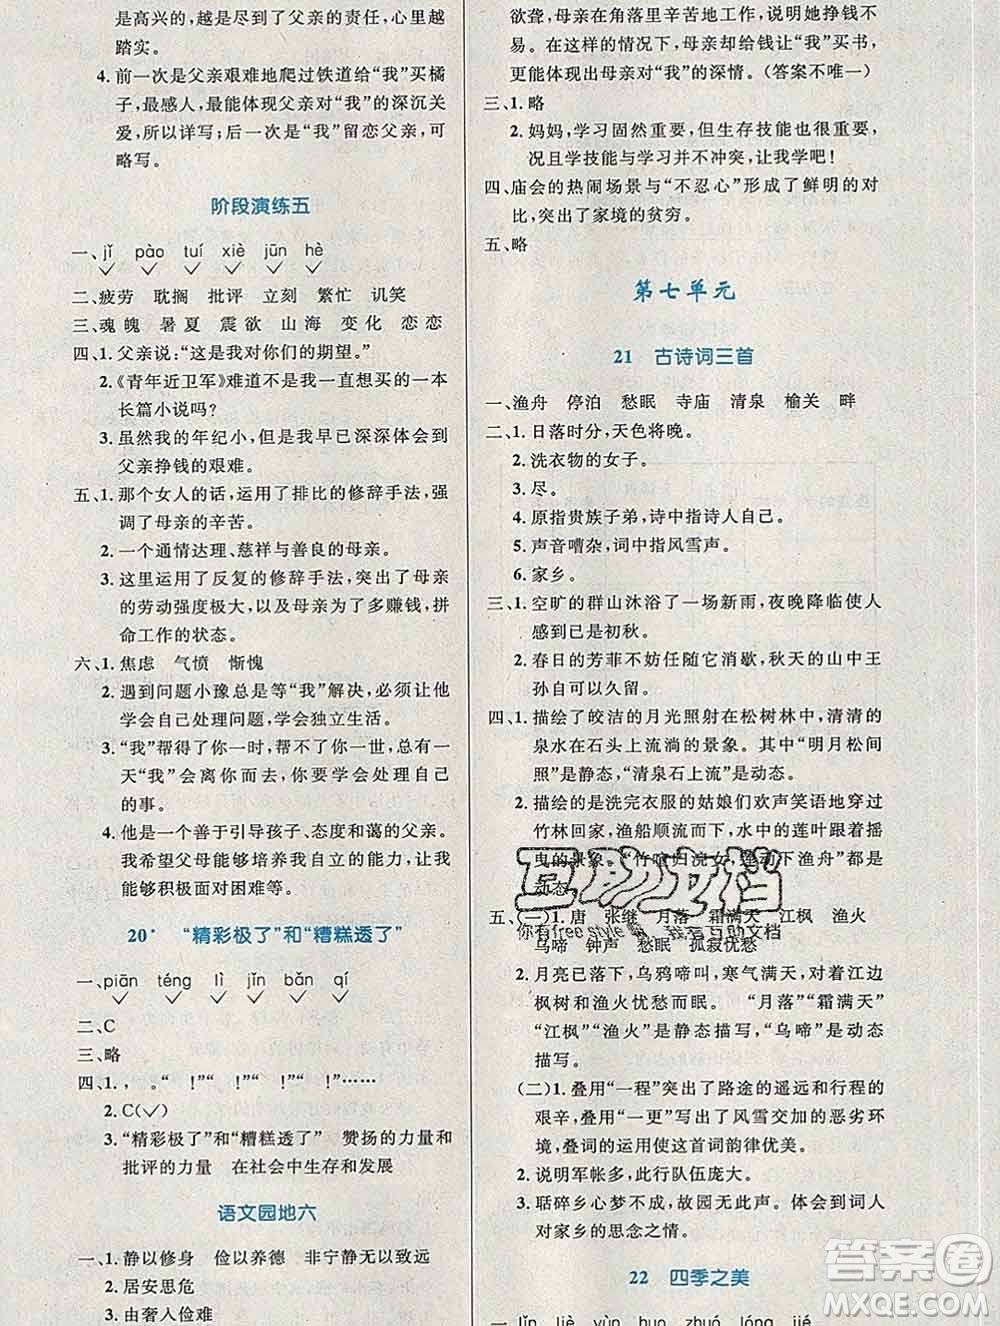 是高兴的，越是尽到了父亲的责任，心里越
踏实。
4. 前一次是父亲艰难地爬过铁道给“我”买橘
子，最感人，最能体现父亲对“我”的深沉关
爱，所以详写；后一次是“我”留恋父亲，可
略写。
阶段演练五
一、jǐ pào tuí xiè jūn hè
二、疲劳 耽搁 批评 立刻 繁忙 讥笑
三、魂 魄 暑 夏 震 欲 山 海 变 化 恋 恋
四、1. 父亲说：“这是我对你们的期望。”
2.《青年近卫军》难道不是我一直想买的一本
长篇小说吗？
3. 虽然我的年纪小，但我早已深深体会到
父亲挣钱的艰难。
五、1. 那个女人的话，运用了排比的修辞手法，强
调了母亲的辛苦。
2. 一个通情达理、慈祥与善良的母亲。
3. 这里运用了反复的修辞手法，突出了母亲
的劳动强度极大，以及母亲为了多赚钱，拼
命工作的状态。
六、1. 焦虑 气愤 惭愧
2. 遇到问题小豫总是等“我”解决，必须让他
学会自己处理问题，学会独立生活。
3.“我”帮得了你一时，帮不了你一世，总有一
天“我”会离你而去，你要学会处理自己
的事。
4. 他是一个善于引导孩子、态度和蔼的父亲。
我希望父母能够培养我自立的能力，让我
能够积极面对困难等。
20* “精彩极了”和“糟糕透了”
一、piān téng lì jǐn bǎn qí
二、C
三、略
四、1. ， 。“ ！”“ ！”“ ！”“ ！”……
2. C(✓)
3.“精彩极了”和“糟糕透了” 赞扬的力量和
批评的力量 在社会中生存和发展
语文园地六
一、1. 静以修身 俭以养德 非宁静无以致远
2. 居安思危
3. 由奢入俭难
欲聋，母亲在角落里辛苦地工作，说明她挣钱不
易。在这样的情况下，母亲却给钱让“我”买书，
更能体现出母亲对“我”的深情。（答案不唯一）
三、1. 略
2. 妈妈，学习固然重要，但生存技能也很重要，
况且学技能与学习并不冲突，让我学吧！
四、庙会的热闹场景与“不忍心”形成了鲜明的对
比，突出了家境的贫穷。
五、略
第七单元
21 古诗词三首
一、渔舟 停泊 愁眠 寺庙 清泉 榆关 畔
二、1. 日落时分，天色将晚。
2. 洗衣物的女子。
3. 尽。
4. 原指贵族子弟，诗中指诗人自己。
5. 声音嘈杂，词中指风雪声。
6. 家乡。
三、1. 空旷的群山沐浴了一场新雨，夜晚降临使人
感到已是初秋。
2. 春日的芳菲不妨任随它消歇，秋天的山中王
孙自可以久留。
四、1. 描绘了皎洁的月光照射在松树林中，清清的
泉水在石头上流淌的景象。其中“明月松间
照”是静态，“清泉石上流”是动态。
2. 描绘的是洗完衣服的姑娘们欢声笑语地穿过
竹林回家，渔船顺流而下，水中的莲叶跟着摇
曳的景象。“竹喧归浣女，莲动下渔舟”都是
动态。
五、（一）1. 唐 张继 月落 霜满天 江枫 渔火
乌啼 钟声 愁眠 孤寂忧愁
2. 月亮已落下，乌鸦啼叫，寒气满天，对着江边
枫树和渔火忧愁而眠。“月落”“霜满天”
“江枫”“渔火”是静态描写，“乌啼”是动态
描写。
（二）1. 叠用“一程”突出了路途的遥远和行程的
艰辛，叠用“一更”写出了风雪交加的恶劣环
境，叠词的运用使这首词韵律优美。
2. 说明军帐多，此行队伍庞大。
3. 聒碎乡心梦不成，故园无此声。体会到词人
对家乡的思念之情。
22 四季之美
lǐn liè yùn huo zhuó lóng jié
互助文档
你有 free style
互助文档
答案圈
MXQE.COM